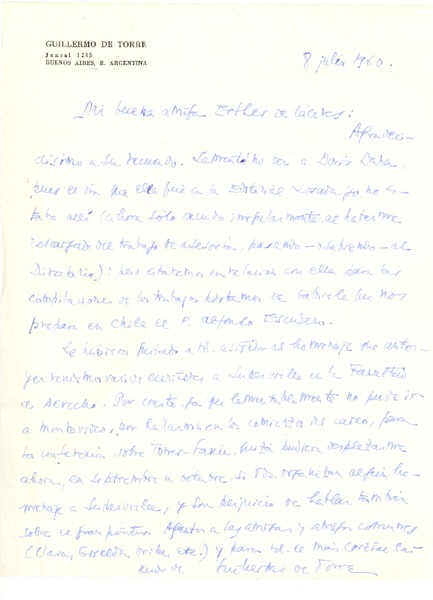 GUILLERMO DE TORRE
Juncal 1283
BUENOS AIRES, R. ARGENTINA
8 julio 1960.
Mi buena amiga Esther de Cáceres:
Agradeci-
dísimo a su recuerdo. Lamenté no ver a Doris Dana,
pues el día que ella fue a la Editorial Losada yo no es-
taba allí (ahora sólo acudo irregularmente, al haberme
descargado del trabajo de asesoría, pasando
Directorio); pero estaremos en relación con ella para las
compilaciones de los trabajos póstumos de Gabriela que nos
prepara en Chile el P. Alfonso Escudero.
Le hubiera gustado a Vd. asistir al homenaje que ante-
ayer rendimos varios a Supervielle en la Facultad
de Derecho. Por cierto, ya que lamentablemente no pude ir
a Montevideo, por hallarme en los comienzos del curso, para
la conferencia sobre Torres-García. Quizá pudiera desplazarme
ahora, en septiembre u octubre, si Vds. organizan al fin ho-
menaje a Supervielle, y sin perjuicio de hablar también
sobre el gran pintor. Afectos a las amistas y amigos comunes
(Clara, Giselda, Oribe, etc.) y para Vd. el más cordial sa-
ludo de Guillermo de Torre